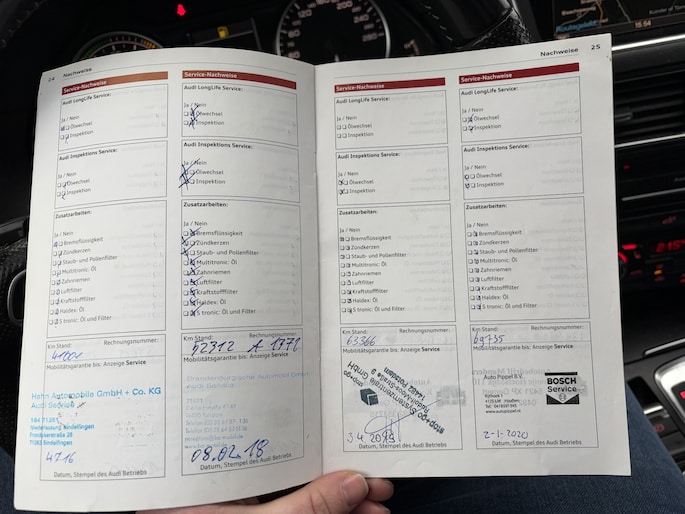 15:54
24 Nachweise
Service-Nachweise
Audi LongLife Service:
Ja / Nein
Ölwechsel
Inspektion
Audi Inspektions Service:
Ja / Nein
Ölwechsel
Inspektion
Zusatzarbeiten:
Ja / Nein
Bremsflüssigkeit
Zündkerzen
Staub- und Pollenfilter
Multitronic: Öl
Zahnriemen
Luftfilter
Kraftstofffilter
Haldex: Öl
S tronic: Öl und Filter
Km Stand: Rechnungsnummer:
Mobilitätsgarantie bis: Anzeige Service
Hahn Automobile GmbH + Co. KG
Audi Service
Niederlassung Sindelfingen
71063 Sindelfingen
4.7.16
Datum, Stempel des Audi Betriebs
Service-Nachweise
Audi LongLife Service:
Ja / Nein
Ölwechsel
Inspektion
Audi Inspektions Service:
Ja / Nein
Ölwechsel
Inspektion
Zusatzarbeiten:
Ja / Nein
Bremsflüssigkeit
Zündkerzen
Staub- und Pollenfilter
Multitronic: Öl
Zahnriemen
Luftfilter
Kraftstofffilter
Haldex: Öl
S tronic: Öl und Filter
Km Stand: Rechnungsnummer:
52312 A 1771
Mobilitätsgarantie bis: Anzeige Service
08.02.18
Datum, Stempel des Audi Betriebs
Nachweise 25
Service-Nachweise
Audi LongLife Service:
Ja / Nein
Ölwechsel
Inspektion
Audi Inspektions Service:
Ja / Nein
Ölwechsel
Inspektion
Zusatzarbeiten:
Ja / Nein
Bremsflüssigkeit
Zündkerzen
Staub- und Pollenfilter
Multitronic: Öl
Zahnriemen
Luftfilter
Kraftstofffilter
Haldex: Öl
S tronic: Öl und Filter
Km Stand: Rechnungsnummer:
63366
Mobilitätsgarantie bis: Anzeige Service
stop+go Systemzentrale GmbH
14482 Potsdam
Datum, Stempel des Audi Betriebs
Service-Nachweise
Audi LongLife Service:
Ja / Nein
Ölwechsel
Inspektion
Audi Inspektions Service:
Ja / Nein
Ölwechsel
Inspektion
Zusatzarbeiten:
Ja / Nein
Bremsflüssigkeit
Zündkerzen
Staub- und Pollenfilter
Multitronic: Öl
Zahnriemen
Luftfilter
Kraftstofffilter
Haldex: Öl
S tronic: Öl und Filter
Km Stand: Rechnungsnummer:
69735
Mobilitätsgarantie bis: Anzeige Service
Auto Pippel B.V.
BOSCH
Service
www.autopippel.nl
2-1-2020
Datum, Stempel des Audi Betriebs